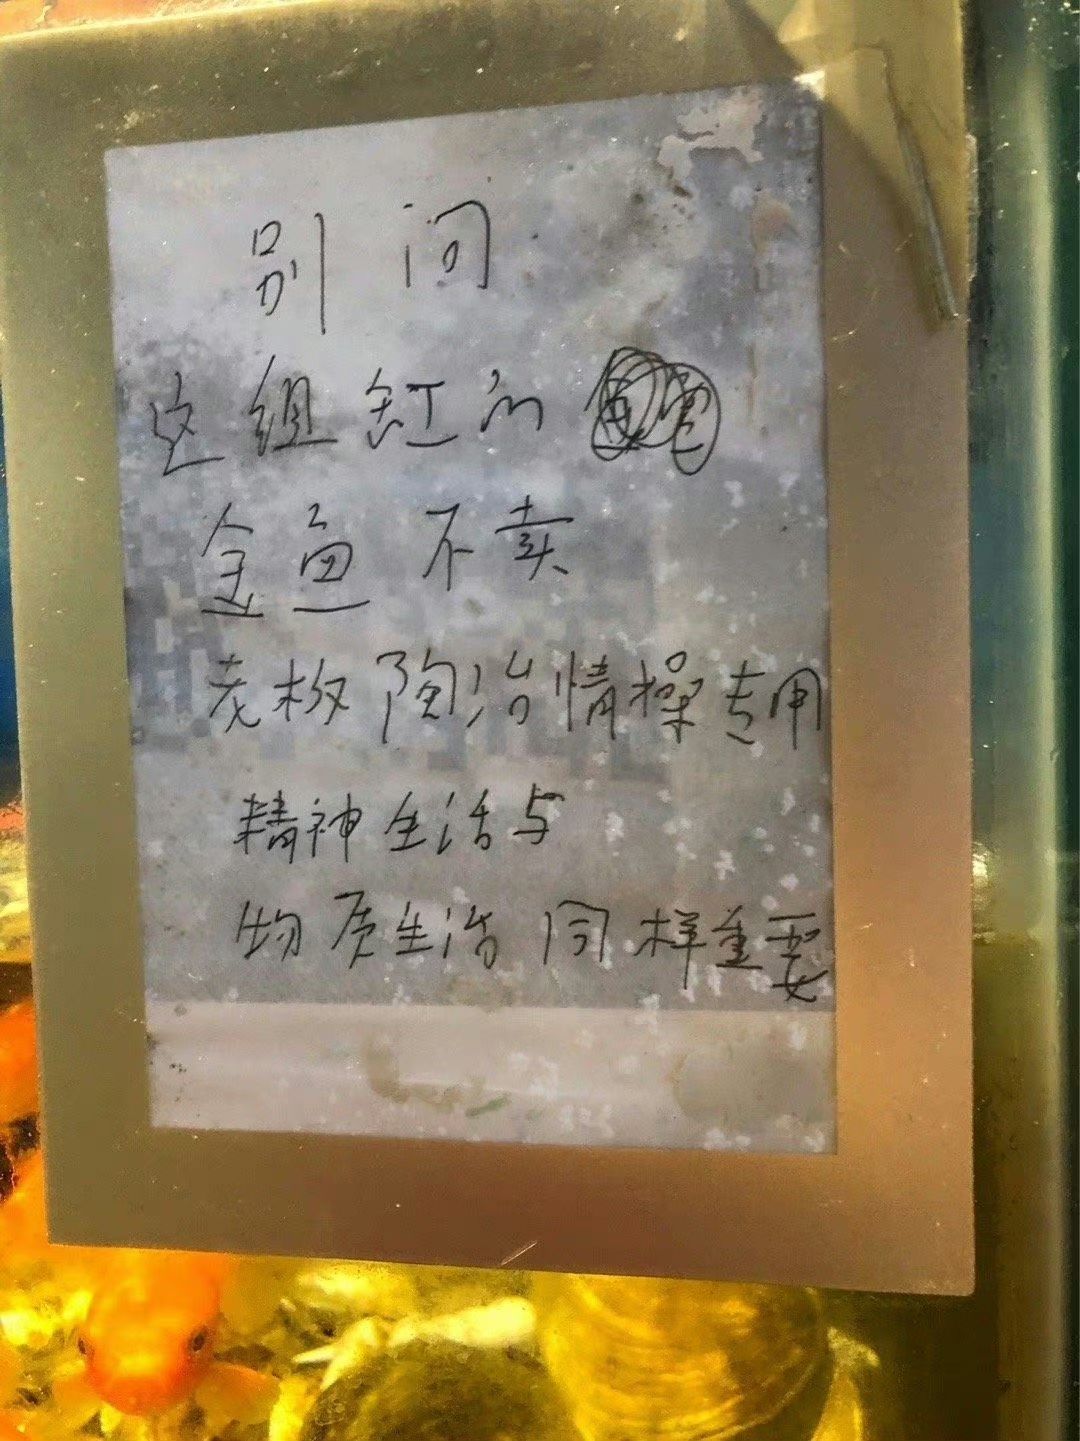 别问
这组缸的
金鱼不卖
老板陶冶情操专用
精神生活与
物质生活同样重要